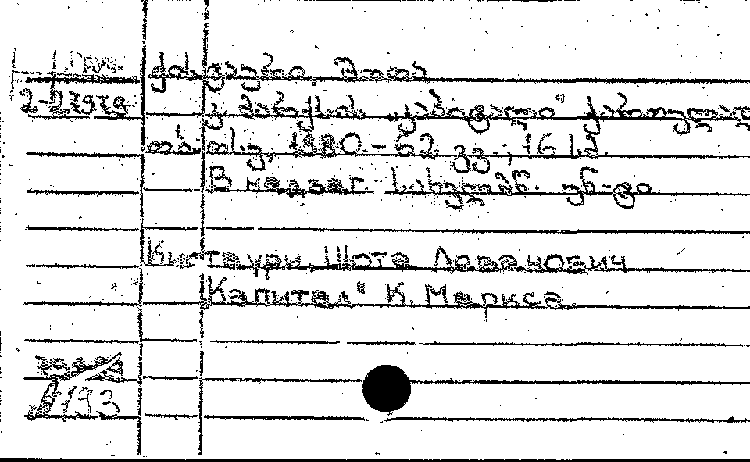 ქისტაური, შოთა
2-27979
კ. მარქსის „კაპიტალი“ ქართულად
თბ. თსუ, 1980 – 62 გვ.; 16 სმ.
В надзаг. სახელმწ. უნ-ტი
Кистаури, Шота Леванович
"Капитал" К. Маркса
193